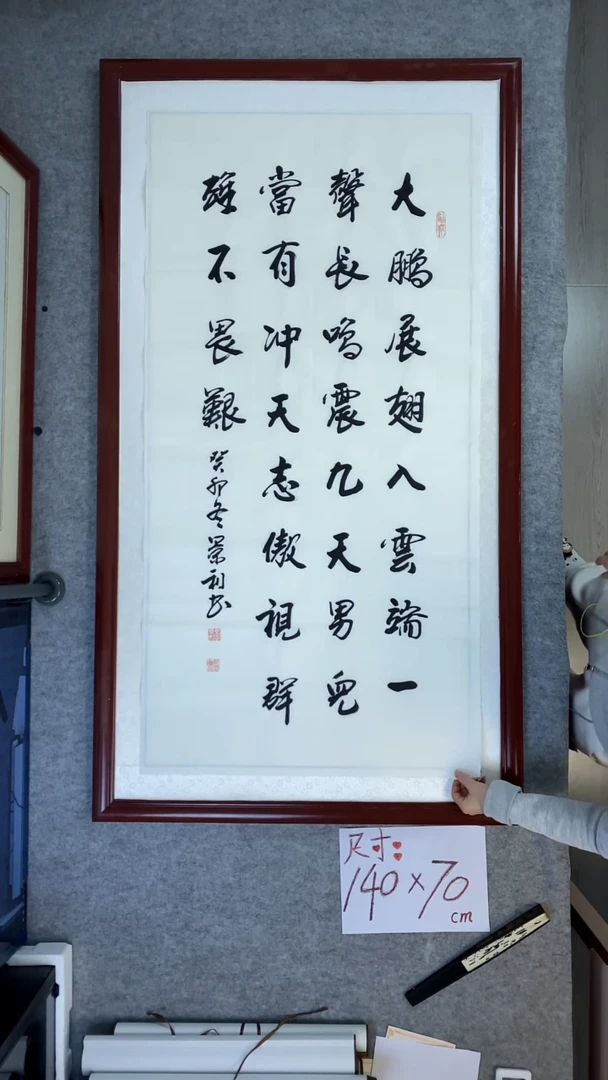 大鵬展翅入雲端一
聲長鳴震九天男兒
當有沖天志傲視群
雄不畏艱
癸卯冬景利书
尺寸:
140×70
cm